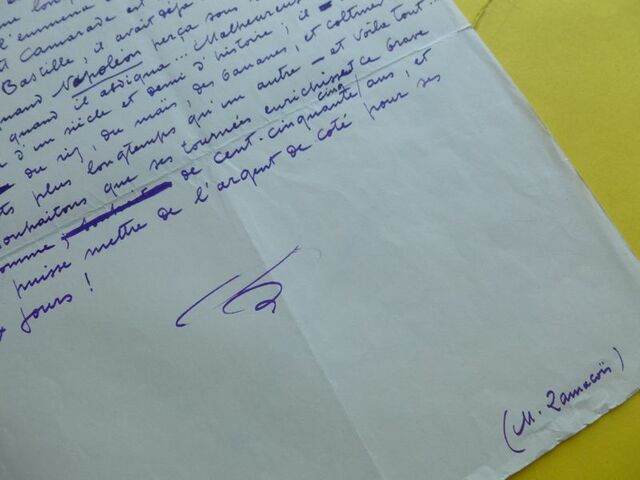 l'emmena
Camarade est
Bastille, il avait déjà
quand Napoléon perça sous
quand il abdiqua... Malheureus
d'un siècle et demi d'histoire ; il
du riz, du maïs, des bananes, et cultiver
plus longtemps qu'un autre — et voilà tout...
souhaitons que ses tournées enrichissent ce brave
homme, de cent-cinquante cinq ans, et
puisse mettre de l'argent de côté pour ses
jours !
(M. Zamacoïs)